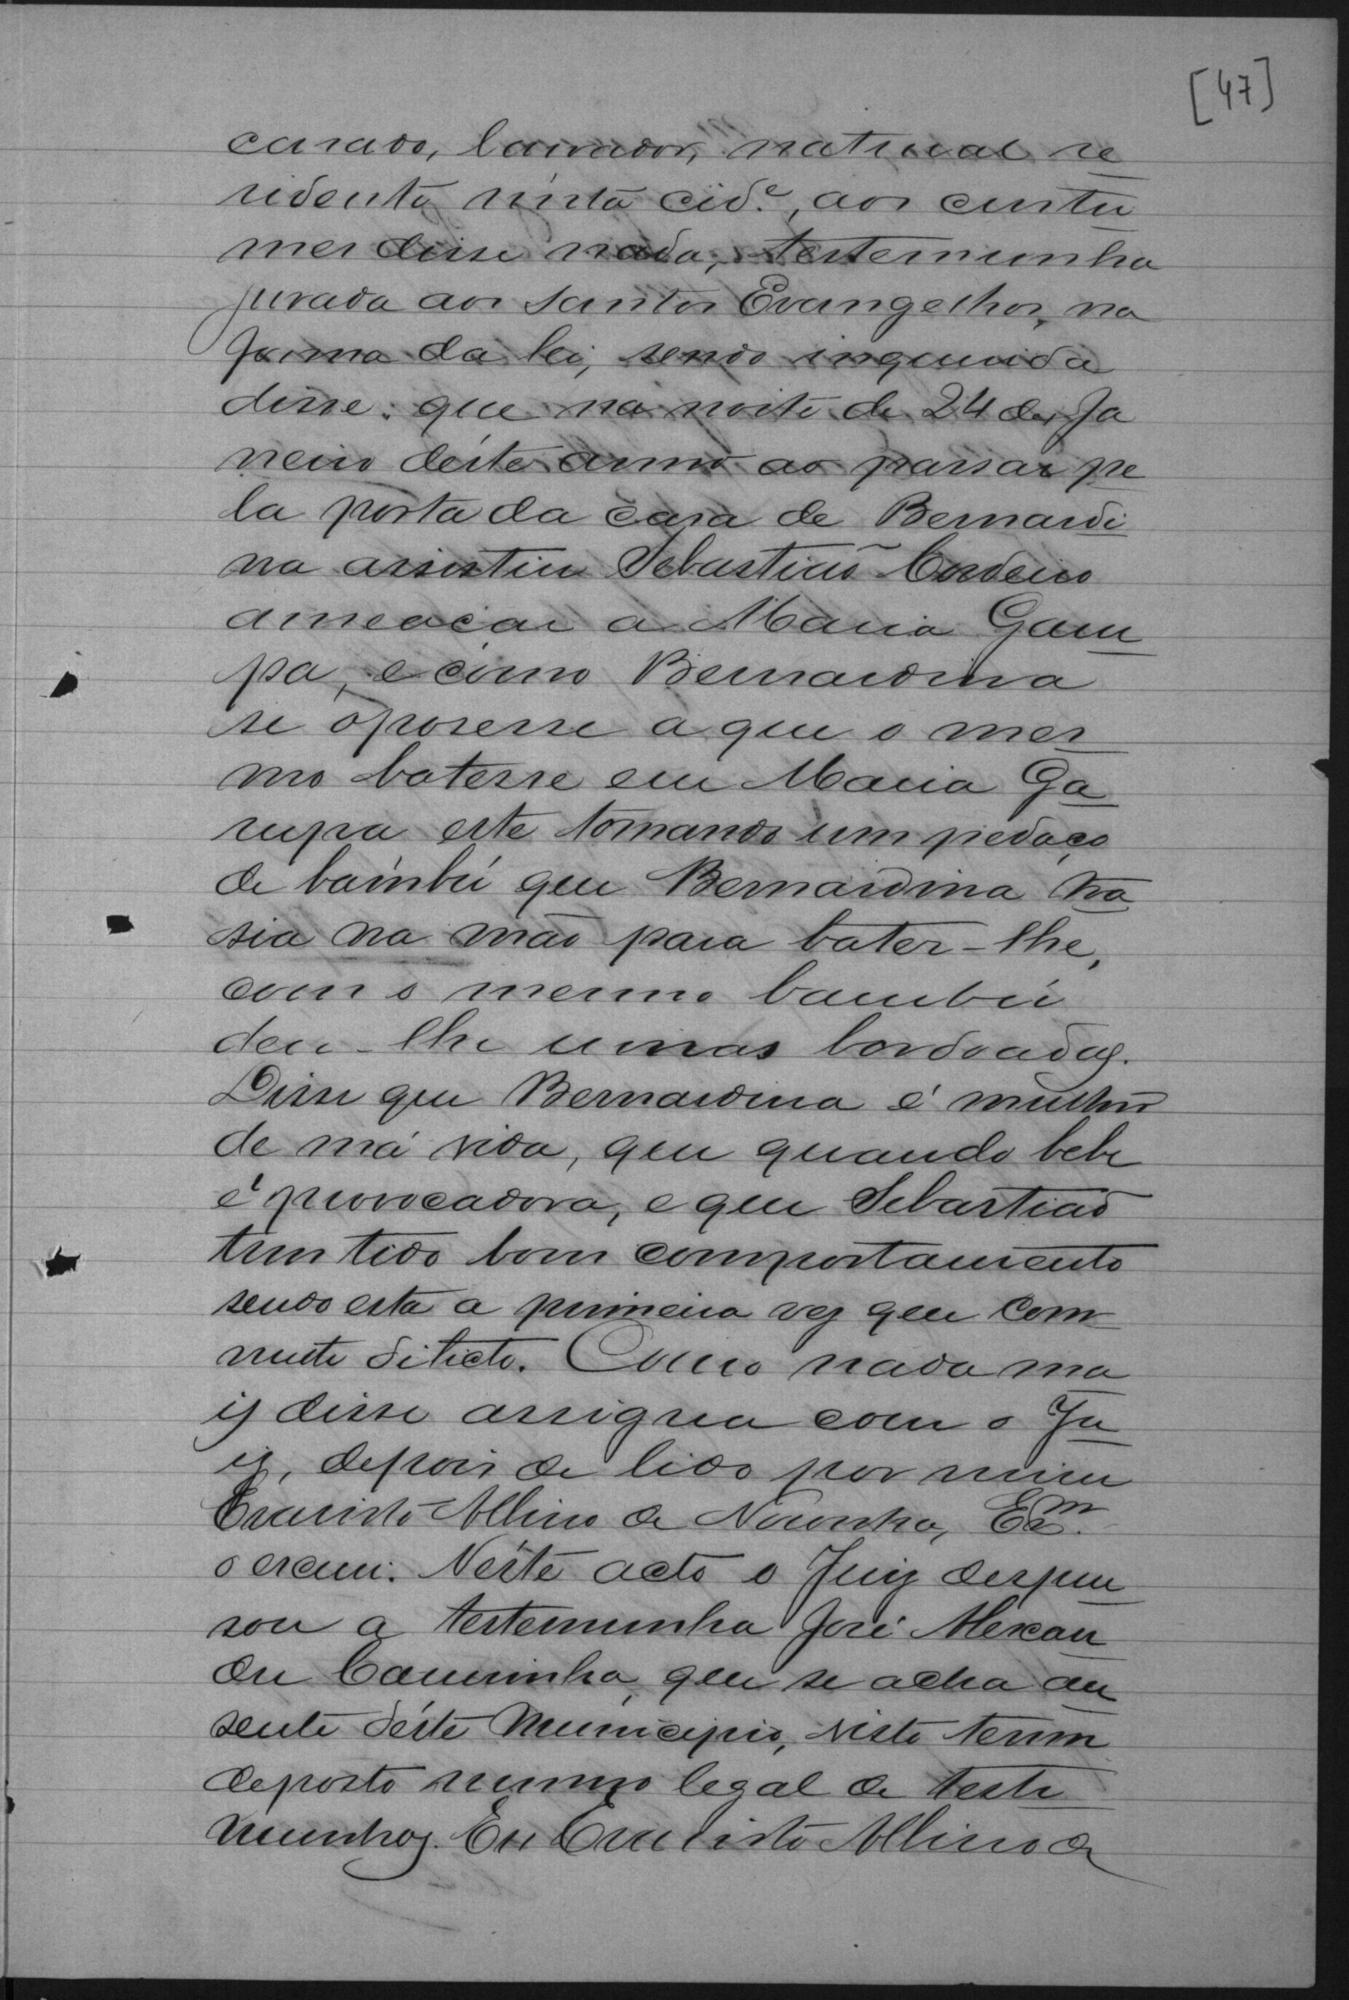 [47]
casado, lavrador, natural re
sidente nésta cid.e, aos custu
mes disse nada, testemunha
jurada aos Santos Evangelhos, na
forma da lei, sendo inquirida
disse: que na noite de 24 de Ja
neiro déste anno ao passar pe
la porta da casa de Bernardi
na assistiu Sebastião Cordeiro
ameaçar a Maria Garu
pa, e como Bernardina
se oposesse a que o mes
mo batesse em Maria Ga
rupa este tomando um pedaço
de bambú que Bernardina tra
sia na mão para bater-lhe,
com o mesmo bambú
deu-lhe umas bordoadas.
Disse que Bernardina é mulher
de má vida, que quando bebe
é provocadora, e que Sebastião
tem tido bom comportamento
sendo esta a primeira vez que com
mette dilicto. Como nada ma
is disse assigna com o Ju
iz, depois de lido por mim
Evaristo Albino de Noronha, Esm.
o escrevi. Néste acto o Juiz dispen
sou a testemunha José Alexan
dre Caminha, que se acha au
sente déste Municipio, visto terem
deposto numero legal de teste
munhas. Eu Evaristo Albino de